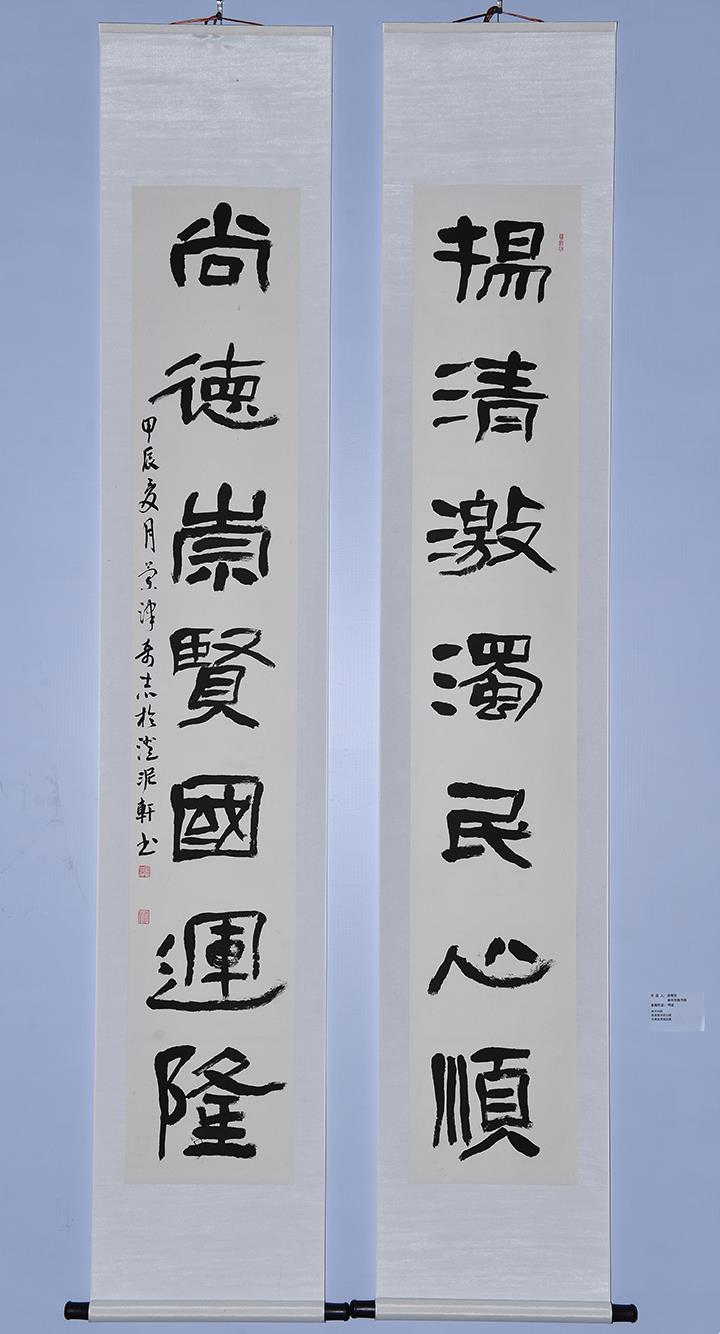 揚清激濁民心順
尚德崇賢國運隆
甲辰夏月 於澄泥軒書